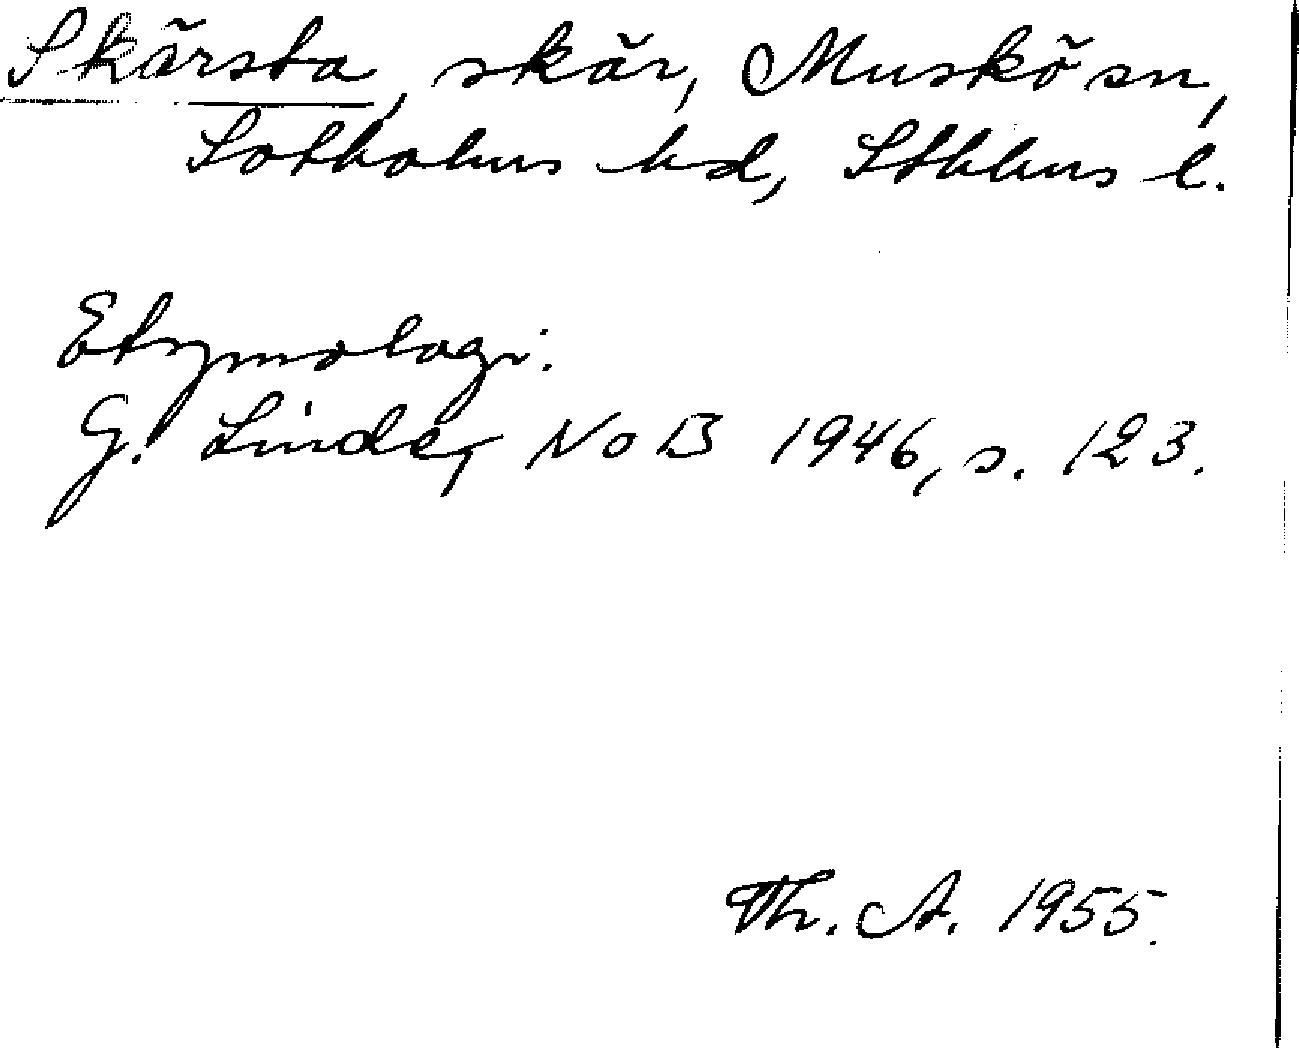 Skärsta, skär, Muskö sn,
Sotholms hd, Sthlms l.
Etymologi.
G. Linde, NoB 1946, s. 123.
Th. A. 1955.